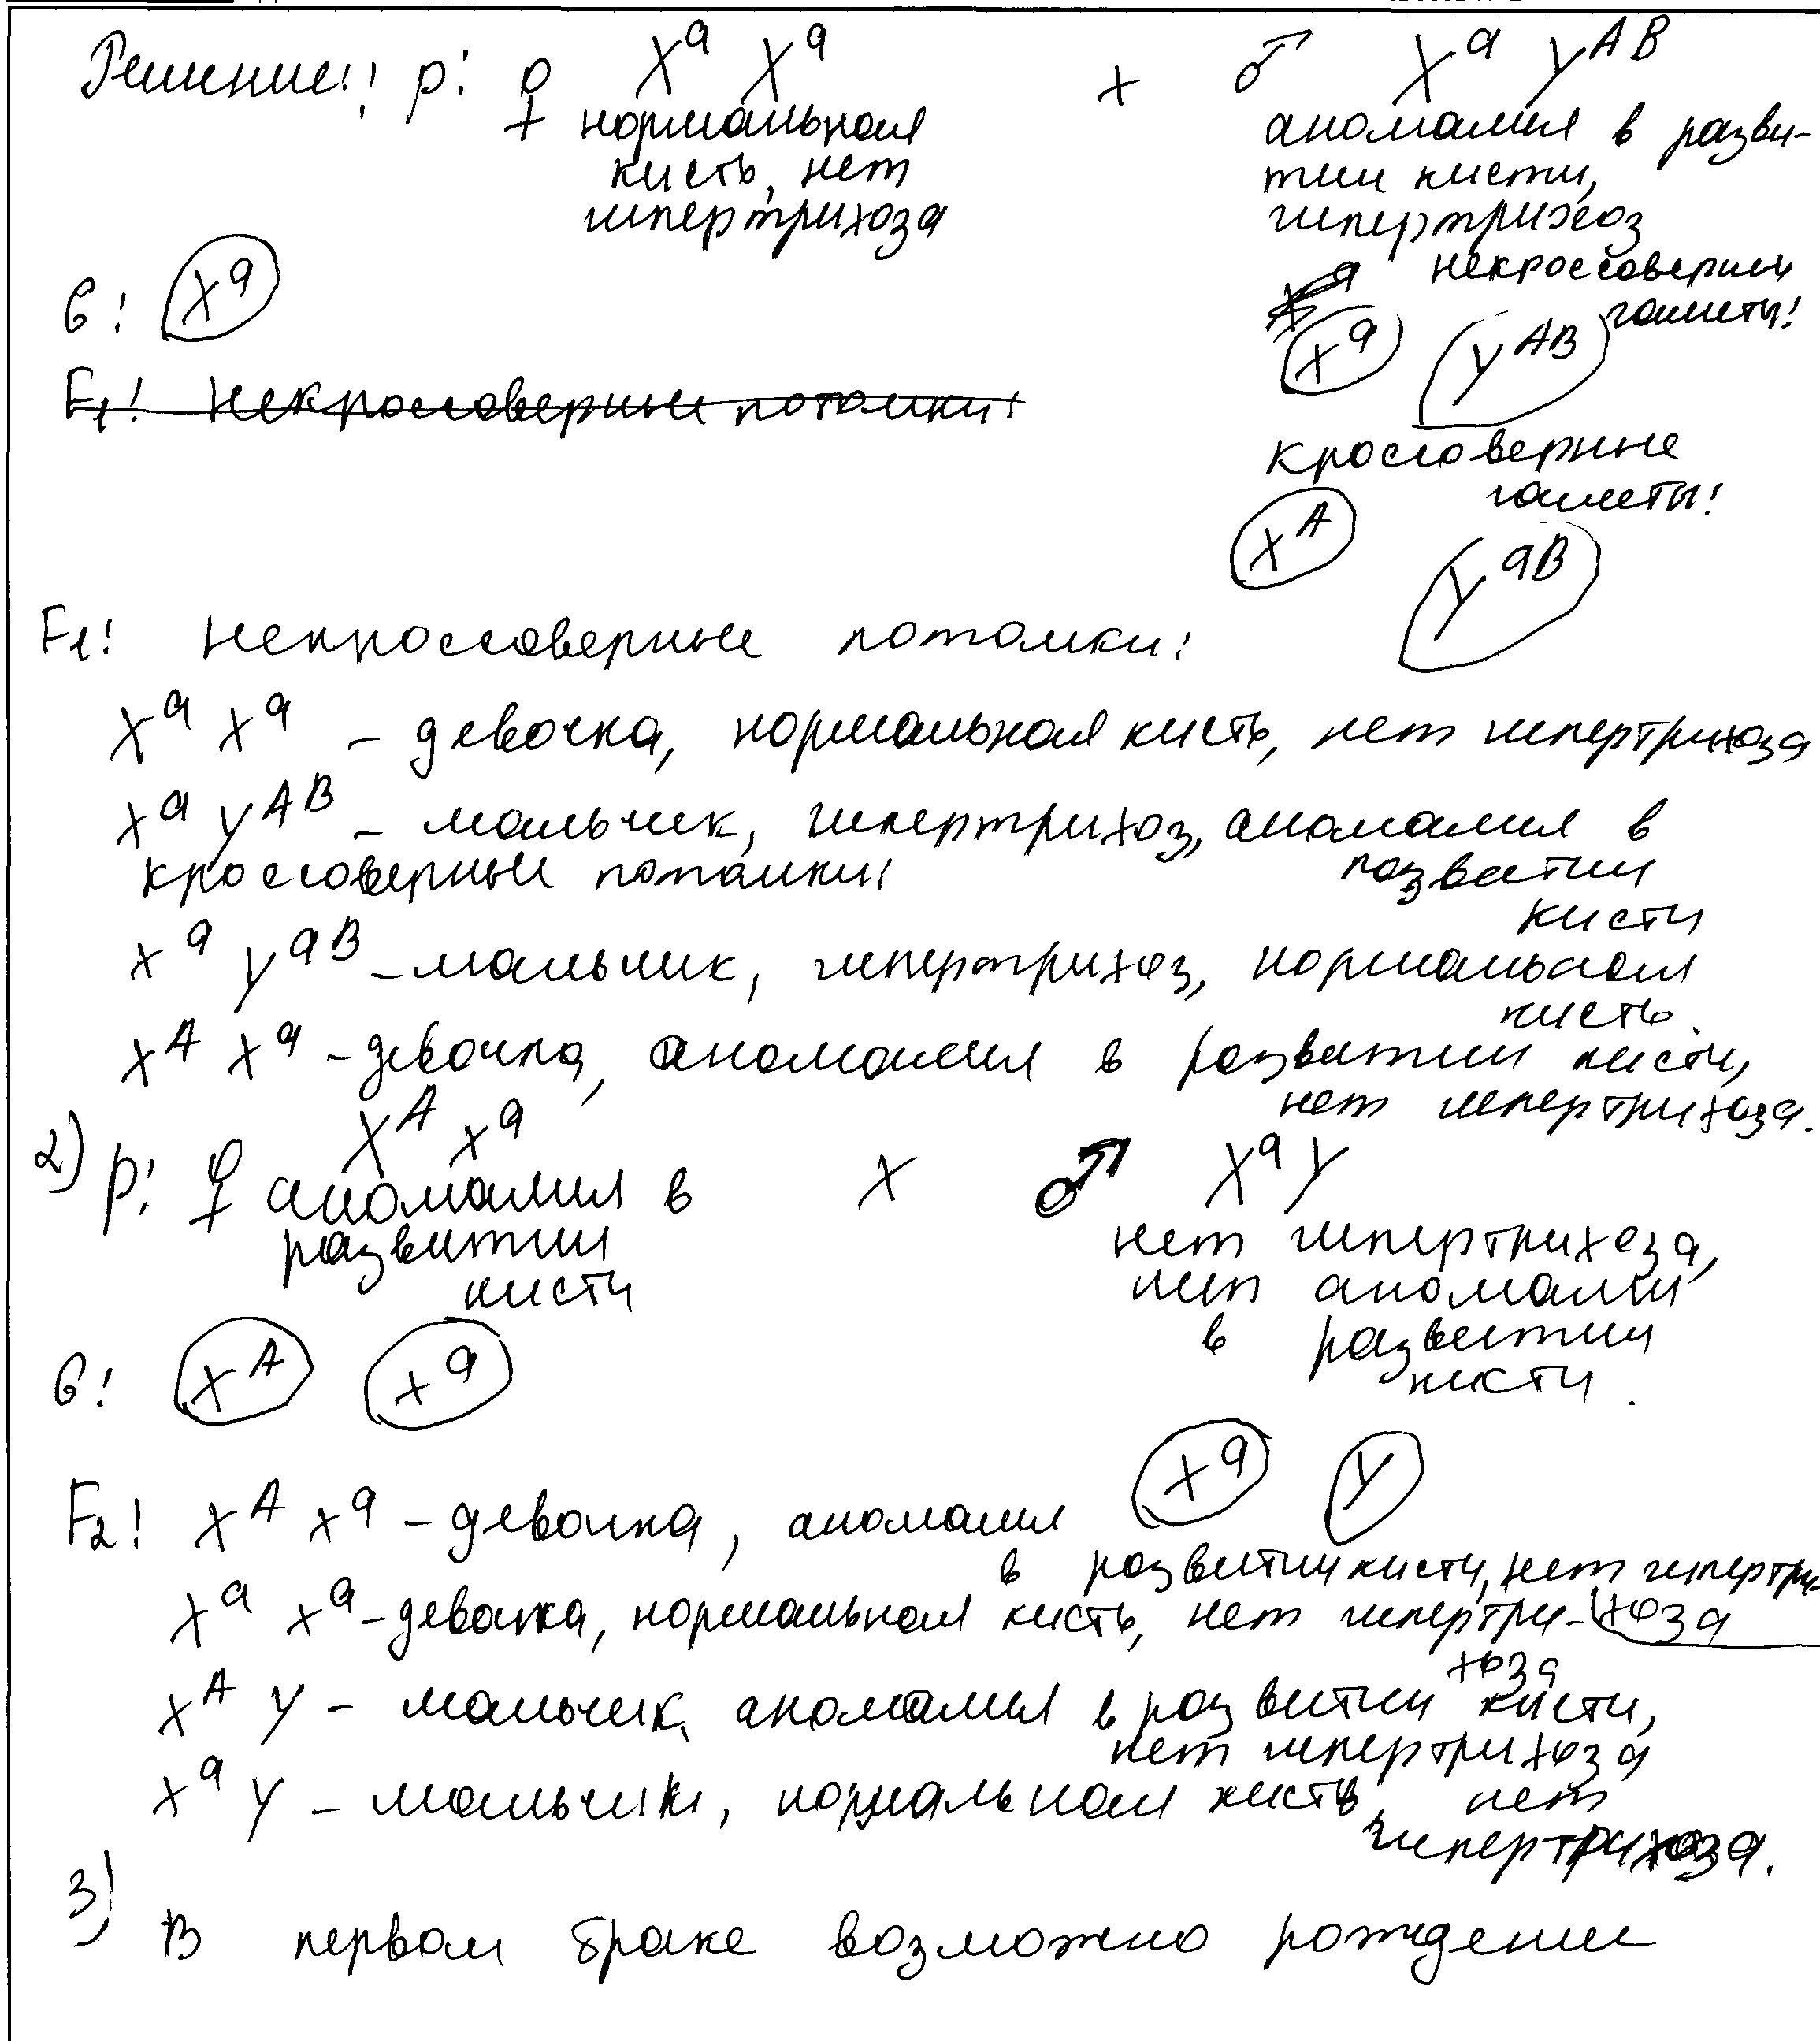 Решение: p: ♀ Xᵃ Xᵃ × ♂ Xᵃ Yᴬᴮ
нормальная аномалия в разви-
кисть, нет тии кисти,
гипертрихоза гипертрихоз
некроссоверные
G: Xᵃ гаметы:
Xᵃ Yᴬᴮ
F₁: некроссоверные потомки:
кроссоверные
гаметы:
Xᴬ Yᵃᴮ
F₁: некроссоверные потомки:
Xᵃ Xᵃ - девочка, нормальная кисть, нет гипертрихоза
Xᵃ Yᴬᴮ - мальчик, гипертрихоз, аномалия в
кроссоверные потомки: развитии
кисти
Xᵃ Yᵃᴮ - мальчик, гипертрихоз, нормальная
кисть.
Xᴬ Xᵃ - девочка, аномалия в развитии кисти,
нет гипертрихоза.
2) p: ♀ Xᴬ Xᵃ × ♂ Xᵃ Y
аномалия в нет гипертрихоза,
развитии нет аномалии
кисти в развитии
кисти.
G: Xᴬ Xᵃ
Xᵃ Y
F₂: Xᴬ Xᵃ - девочка, аномалия
в развитии кисти, нет гипертри-
хоза
Xᵃ Xᵃ - девочка, нормальная кисть, нет гипертри-
хоза
Xᴬ Y - мальчик, аномалия в развитии кисти,
нет гипертрихоза
Xᵃ Y - мальчик, нормальная кисть, нет
гипертрихоза.
3) В первом браке возможно рождение